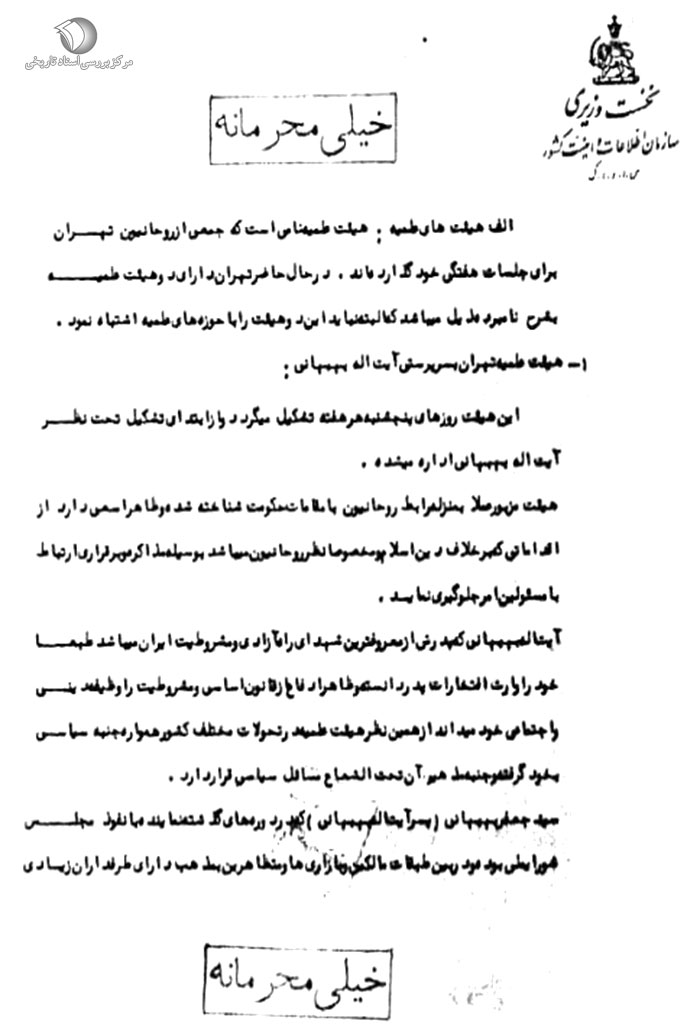 مرکز بررسی اسناد تاریخی
نخست وزیری
سازمان اطلاعات و امنیت کشور
خیلی محرمانه
الف هیئت های علمیه : هیئت علمیه نامی است که جمعی از روحانیون تهران
برای جلسات هفتگی خود گذارده اند . در حال حاضر تهران دارای دو هیئت علمیه
بشرح نامبرده ذیل میباشد که البته نباید این دو هیئت را با حوزه های علمیه اشتباه نمود .
۱- هیئت علمیه تهران بسرپرستی آیت اله بهبهانی :
این هیئت روزهای پنجشنبه هر هفته تشکیل میگردد و از ابتدای تشکیل تحت نظر
آیت اله بهبهانی اداره میشده .
هیئت مزبور عملا بمنزله رابط روحانیون با مقامات حکومت شناخته شده و ظاهرا سعی دارد از
اقداماتی که بر خلاف دین اسلام و مخصوصا نظر روحانیون میباشد بوسیله مذاکره و برقراری ارتباط
با مسئولین امر جلوگیری نماید .
آیت اله بهبهانی که پدرش از معروفترین شهدای راه آزادی و مشروطیت ایران میباشد طبعا
خود را وارث افتخارات پدر دانسته و ظاهرا دفاع از قانون اساسی و مشروطیت را وظیفه دینی
و اجتماعی خود میداند از همین نظر هیئت علمیه در تحولات مختلف کشور همواره جنبه سیاسی
بخود گرفته و جنبه مذهبی آن تحت الشعاع مسائل سیاسی قرار دارد .
سید جعفر بهبهانی (پسر آیت اله بهبهانی ) که در دوره های گذشته نماینده با نفوذ مجلس
شورایملی بوده و در بین طبقات مالکین و بازاری ها و متظاهرین بمذهب دارای طرفداران زیادی
خیلی محرمانه